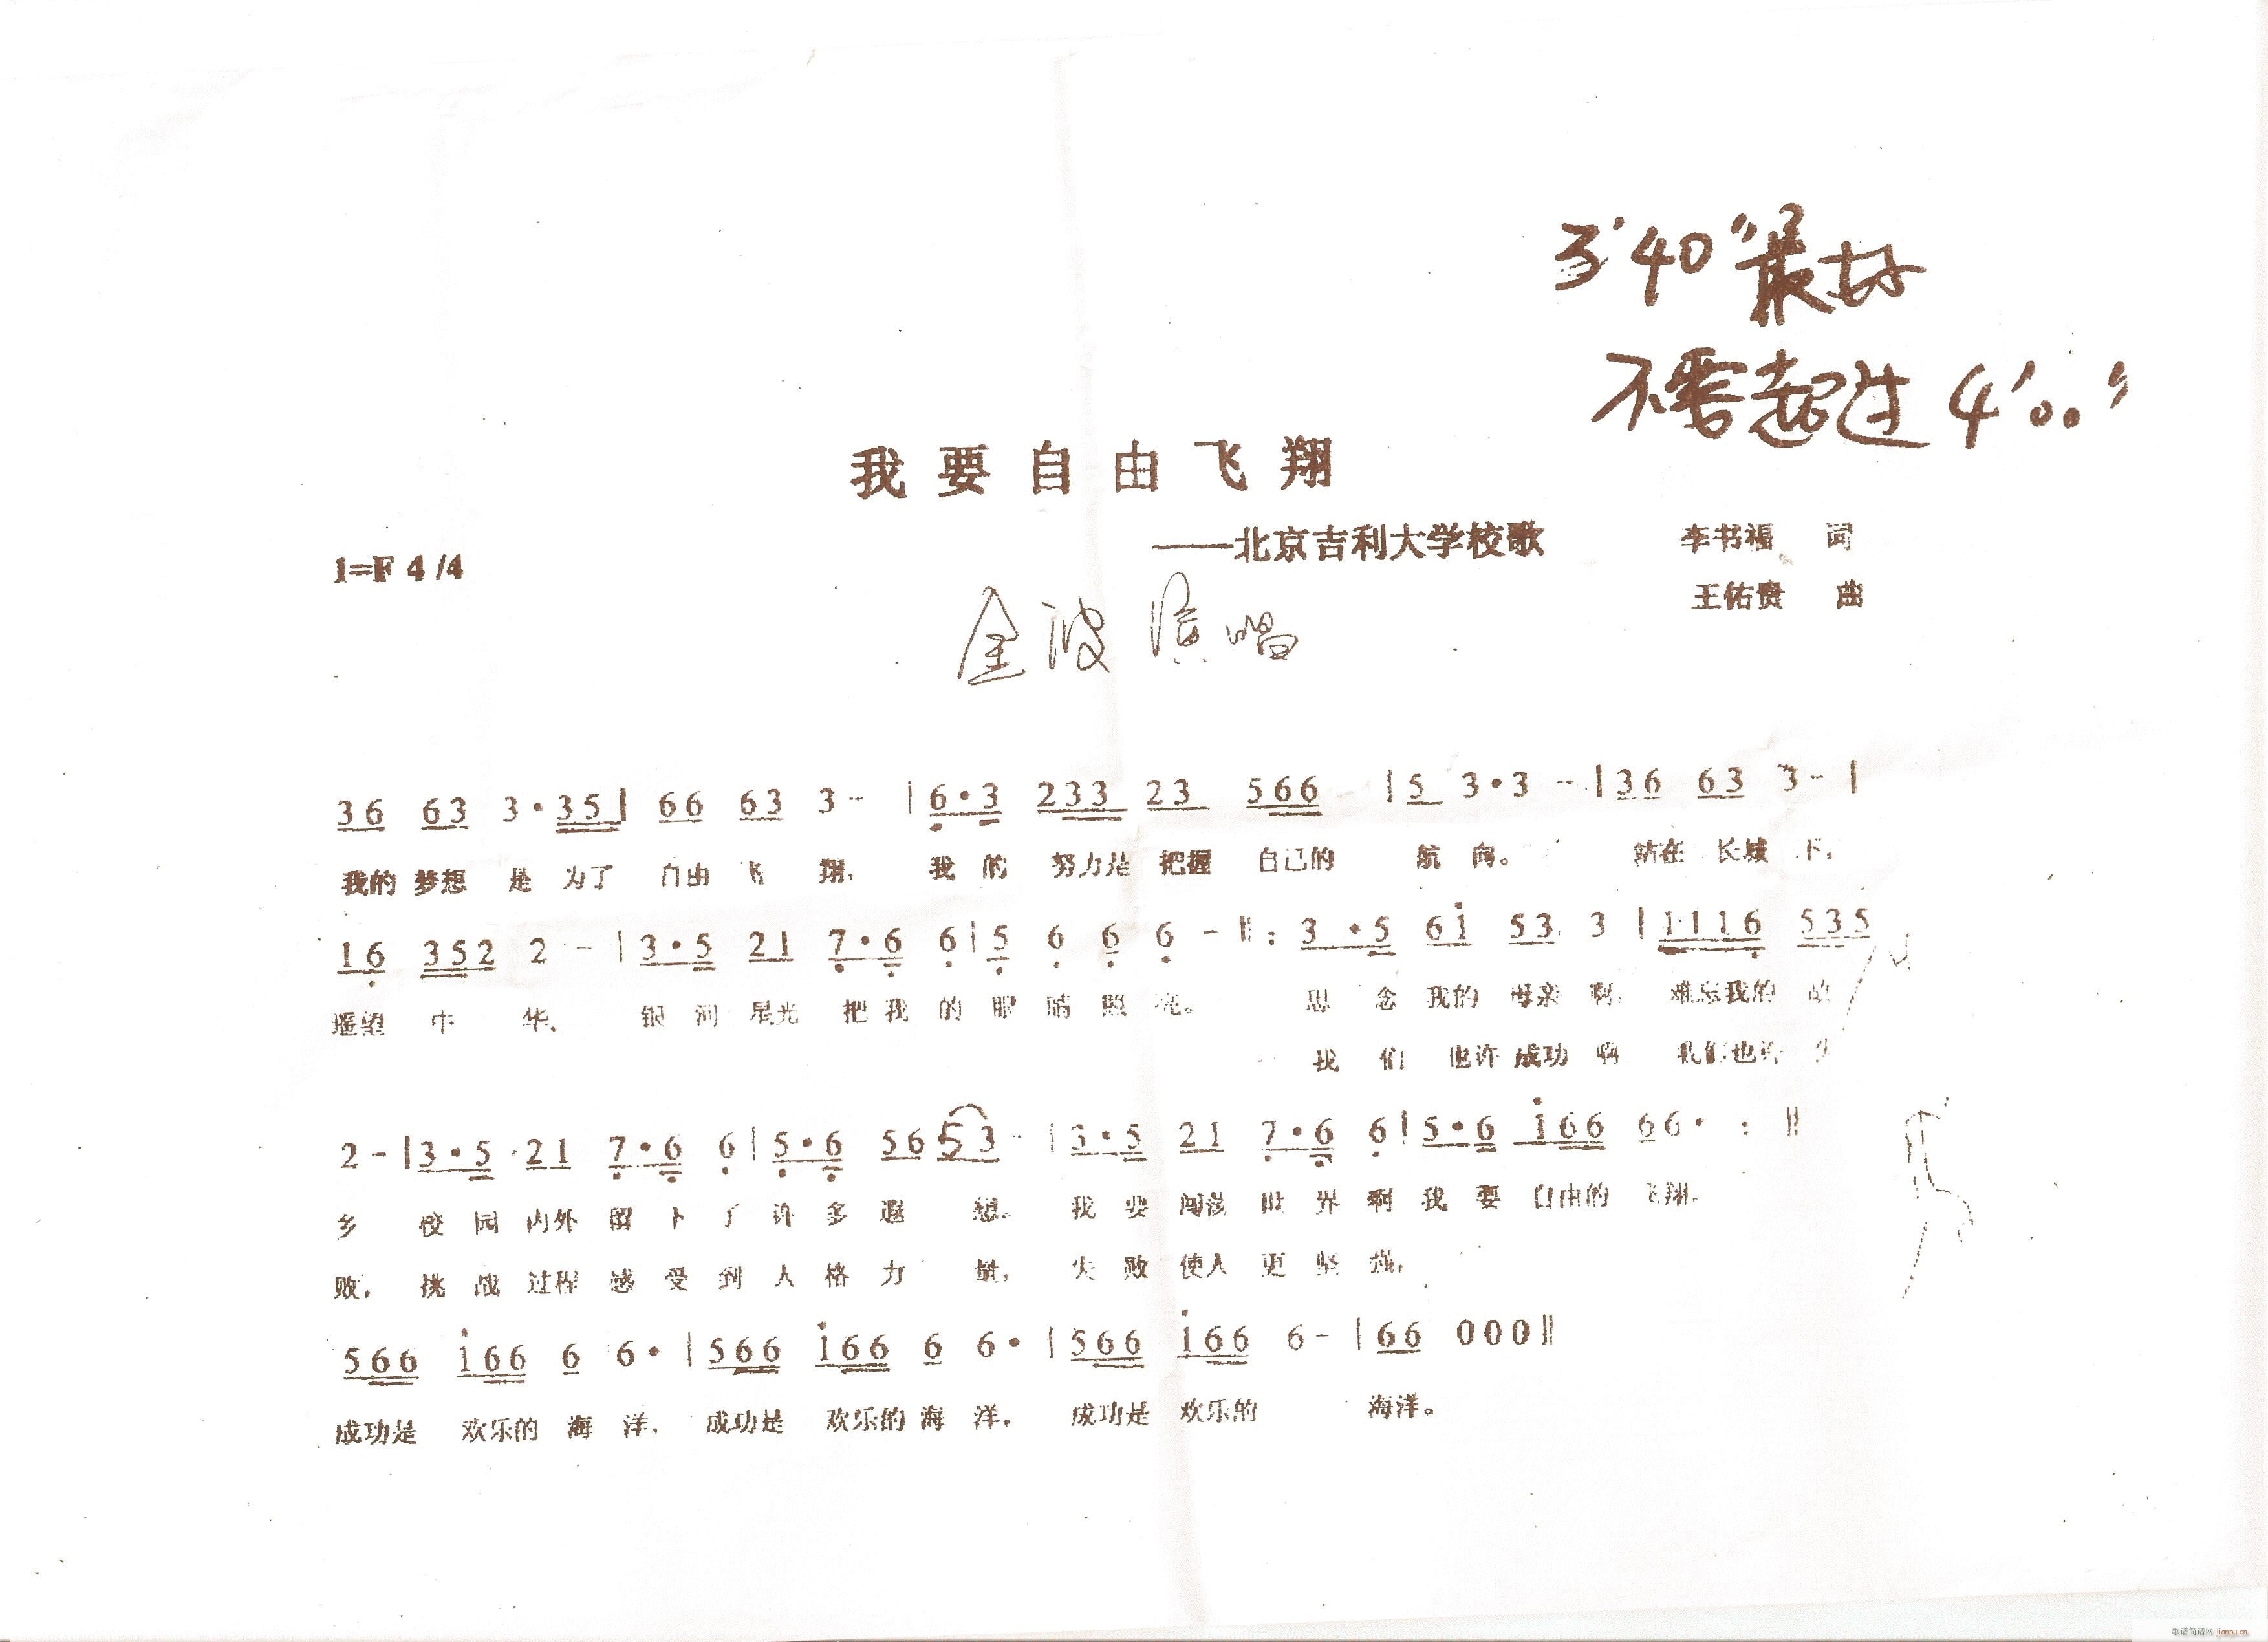 3'40"最好
不要超过4'00"
我要自由飞翔
——北京吉利大学校歌 李书福 词
1=F 4/4
王佑贵 曲
金波演唱
36 63 3·35| 66 63 3- |6·3 233 23 566 |5 3·3 -|36 63 3-|
我的梦想 是 为了 自由 飞 翔, 我 的 努力是 把握 自己的 航 向。 站在 长城 下,
16 352 2 - |3·5 21 7·6 6|5 6 6 6 -‖: 3·5 6i 53 3 |1·116 535
遥望 中 华、 银 河 星光 把 我 的 眼 睛 照 亮。 思 念 我的 母亲 啊, 难忘我的 故
我 们 也许 成功 啊 我们也许 失
2-|3·5 21 7·6 6|5·6 5653 - |3·5 21 7·6 6|5·6 i66 66· :‖
乡 校 园 内外 留 下 了 许 多 遐 想。 我 要 闯荡 世 界 啊 我 要 自由的 飞翔。
败, 挑 战 过程 感 受 到 人 格 力 量, 失 败 使人 更 坚 强,
566 i66 6 6· |566 i66 6 6· |566 i66 6- |66 000‖
成功是 欢乐的 海 洋, 成功是 欢乐的 海 洋, 成功是 欢乐的 海洋。
歌谱简谱网 jianpu.cn